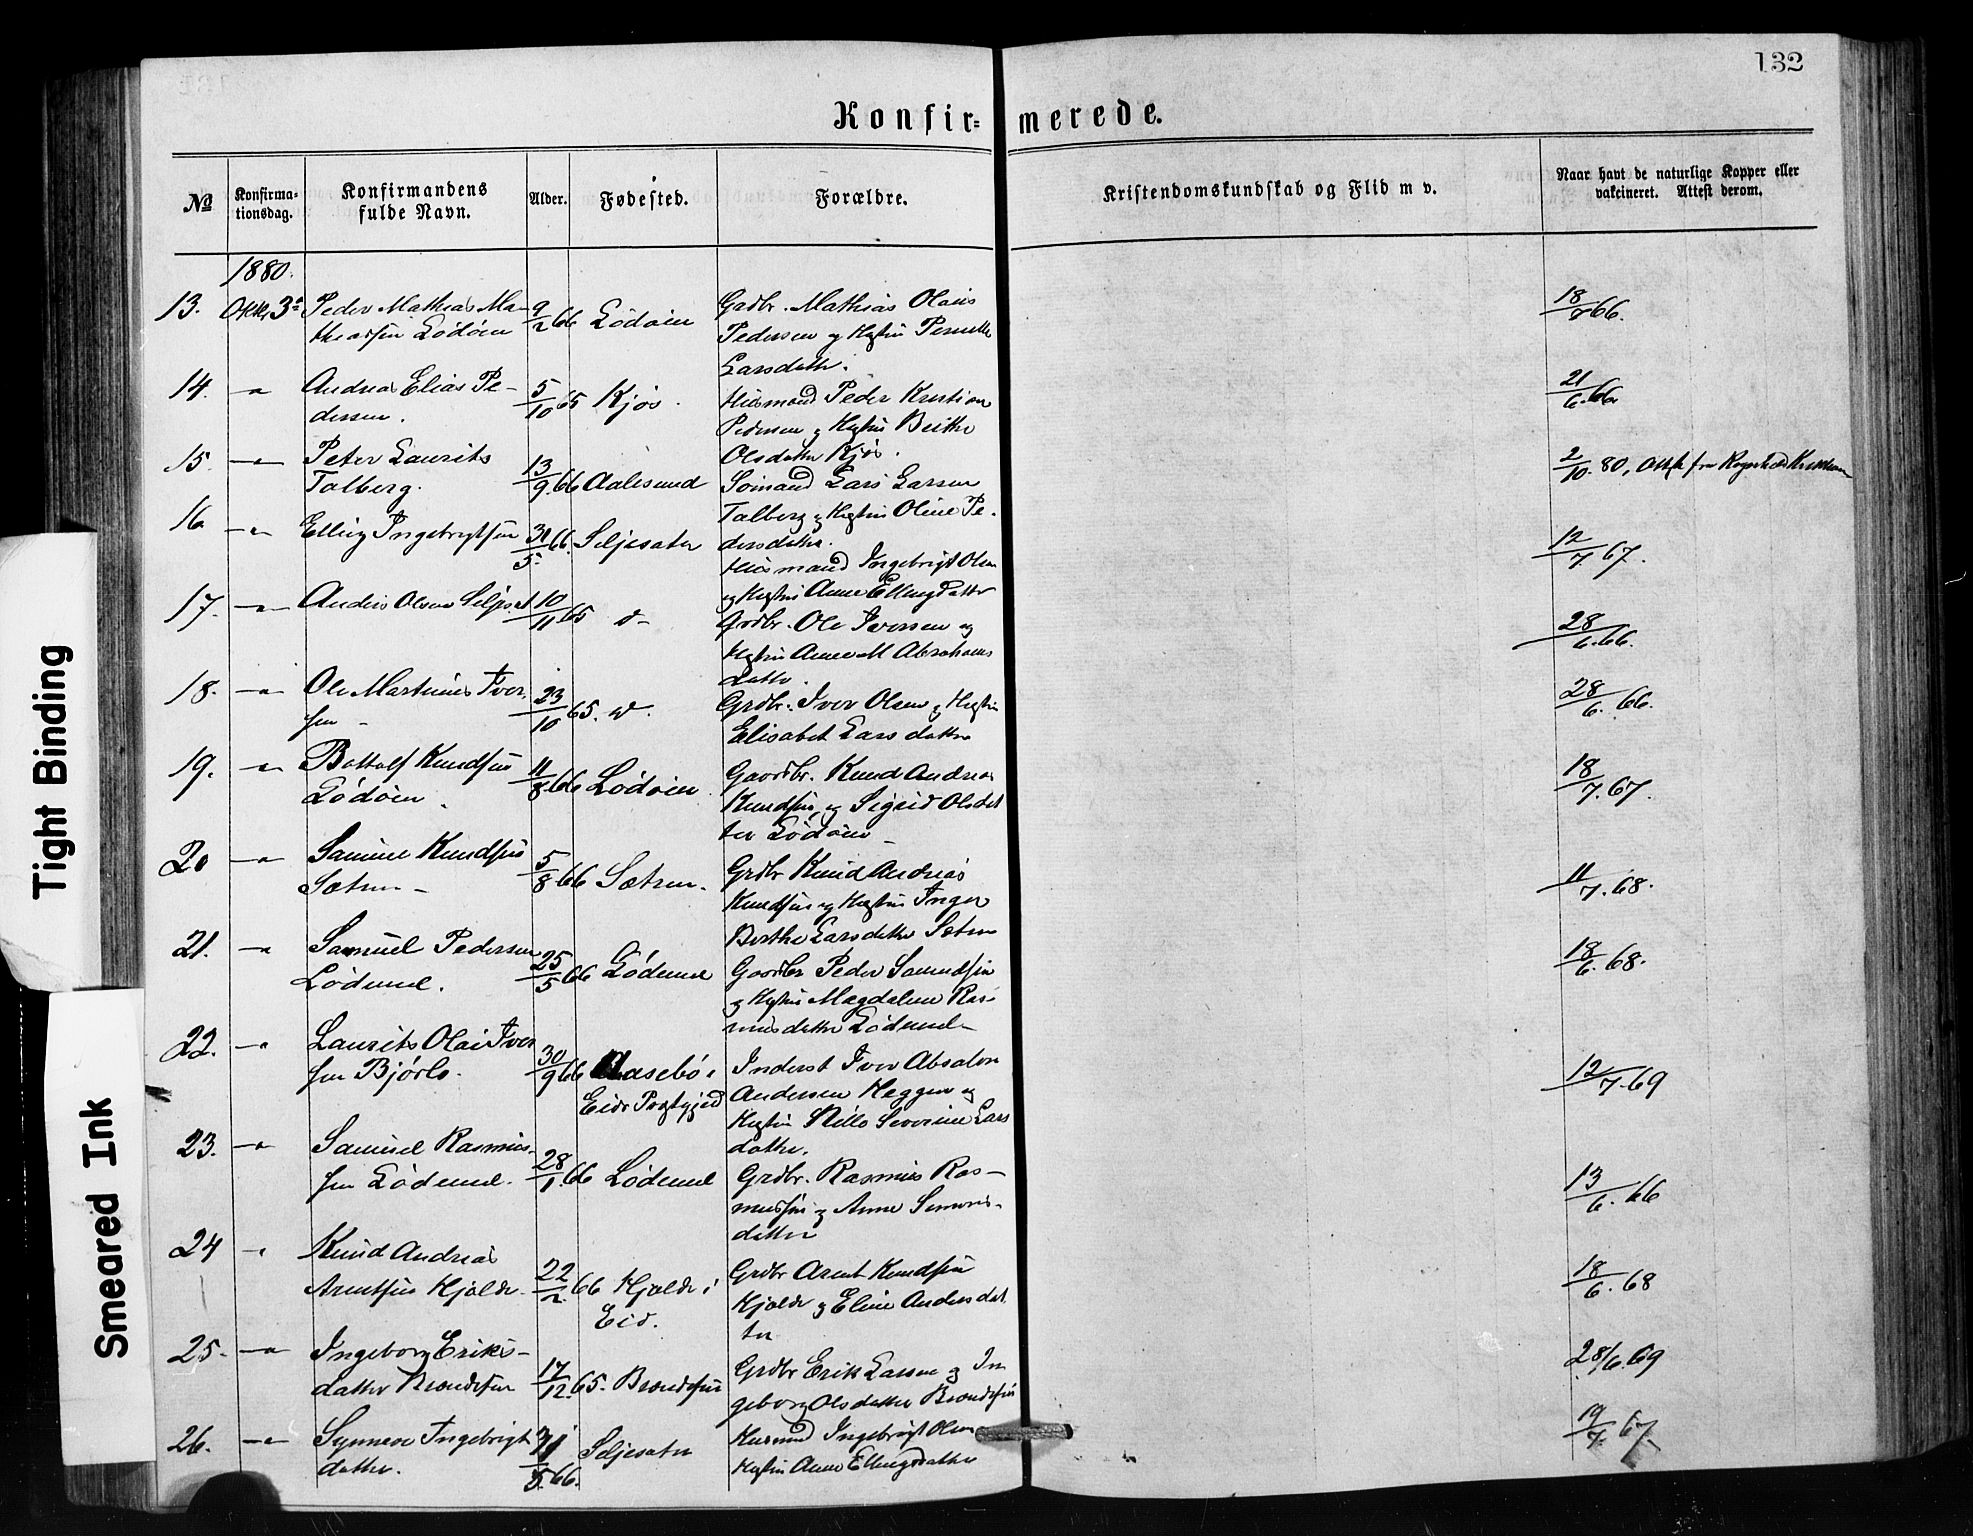 132
Konfir= merede.
№
Konfirma-
tionsdag.
Konfirmandens
fulde Navn.
Alder.
Fødested.
Forældre.
Kristendomskundskab og Flid m v.
Naar havt de naturlige Kopper eller
vakcineret. Attest derom.
1880.
13. Oktbr 3 Peder Mathias Ma-
theassen Lødøen 9/2 66 Lødøen
Grdbr. Mathias Olaus
Pedersen og Hustru Pernille
Larsdatter.
18/7 66.
14. — Andreas Elias Pe-
dersen. 5/10 65 Kjøs.
Husmand Peder Kristian
Pedersen og Hustru Berthe
Olsdatter Kjøs.
21/6. 66
15. — Peter Laurits
Talberg. 13/9. 66 Aalesund
Sømand Lars Larsen
Talberg og Hustru Oline Pe-
dersdatter.
2/10. 80, Attest fra
16. — Elling Ingebrigtsen 31/5. 66. Seljesæter
Husmand Ingebrigt Olsen
og Hustru Anne Ellingsdatter
12/7. 67.
17. — Anders Olsen Seljeset 10/11 65 d-
Grdbr. Ole Iversen og
Hustru Anne M Abrahams
datter.
28/6. 66.
18. — Ole Martinus Iver-
sen - 23/10 65. d.
Grdbr. Iver Olsen og Hustru
Elisabet Larsdatter
28/6. 66.
19. — Bottolf Knudsen
Lødøen. 11/8. 66 Lødøen
Gaardbr. Knud Andreas
Knudsen og Sigrid Olsdat
ter Lødøen -
18/7. 67.
20 — Samuel Knudsen
Sætren - 5/8. 66 Sætren.
Grdbr Knud Andreas
Knudsen og Hustru Inger
Berthe Larsdatter Sætren
11/7. 68.
21. — Samuel Pedersen
Lødemel. 25/5 66 Lødemel
Gaardbr Peder
og Hustru Magdalene Ras-
musdatter Lødemel -
18/6. 68.
22. — Laurits Olai Iver
sen Bjørlo. 30/9 66 Aasebø i
Eids Prgstgjeld
Inderst Iver Absalon
Andersen Heggen og
Hustru Severine Lars
datter.
12/7. 69
23. — Samuel Rasmus-
sen Lødemel. 28/1. 66 Lødemel
Grdbr. Rasmus Ras-
mussen og Anne Simons-
datter
13/6. 66
24 — Knud Andreas
Arentsen Hjelde. 22/2. 66 Hjelde i
Eid.
Grdbr Arent Knudsen
Hjelde og Eline Andersdat
ter
18/6. 68
25. — Ingeborg Eriks-
datter Brendsen 17/12. 65. Brendsen
Grdbr Erik Larsen og In
geborg Olsdatter Brendsen
28/6. 69
26. — Synneve Ingebrigt
datter. 31/5. 66. Seljesæter
Husmd Ingebrigt Olsen
Hustru Anne Ellingsdatter
19/7. 67
Tight Binding
Smeared Ink